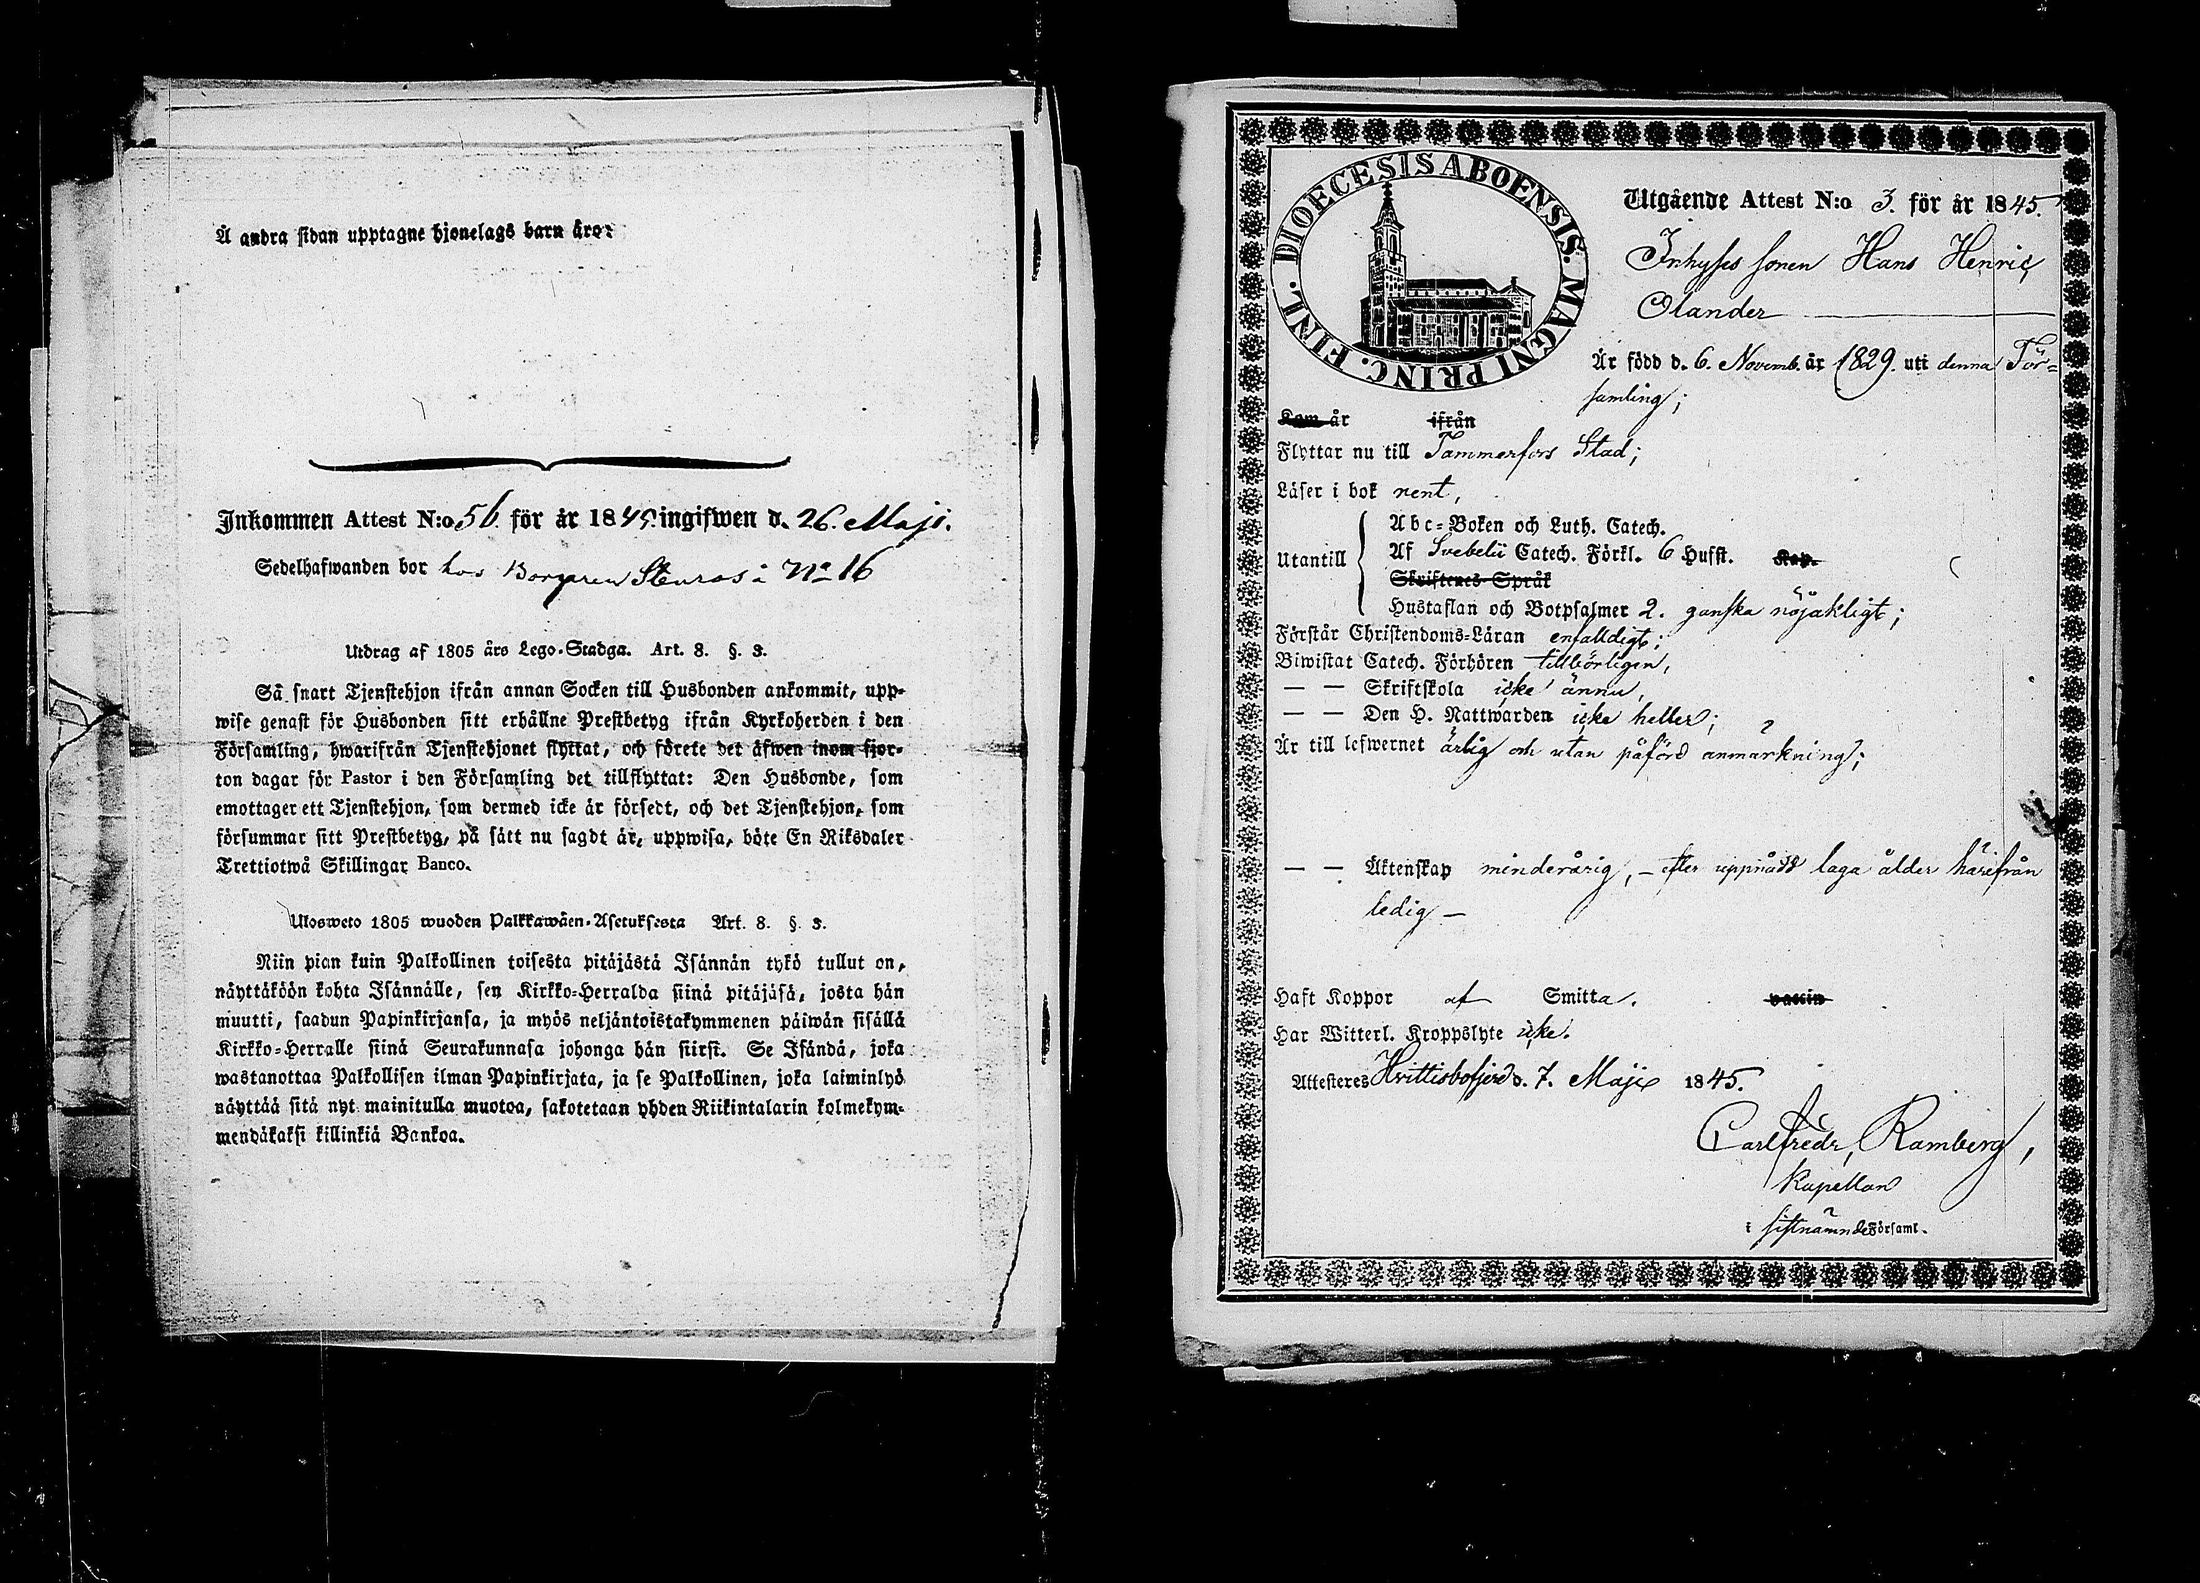 Å andra sidan upptagne hjonelags barn äro:
Inkommen Attest N:o 56. för år 1845. ingifwen d. 26. Maji.
Sedelhafwanden bor hos Borgaren Stenroos i No 16
Utdrag af 1805 års Lego-Stadga. Art. 8. §. 3.
Så snart Tjenstehjon ifrån annan Socken till Husbonden ankommit, upp-
wise genast för Husbonden sitt erhållne Prestbetyg ifrån Kyrkoherden i den
Församling, hwarifrån Tjenstehjonet flyttat, och förete det äfwen inom fjor-
ton dagar för Pastor i den Församling det tillflyttat: Den Husbonde, som
emottager ett Tjenstehjon, som dermed icke är försedt, och det Tjenstehjon, som
försummar sitt Prestbetyg, på sätt nu sagdt är, uppwisa, böte En Riksdaler
Trettiotwå Skillingar Banco.
Ulosweto 1805 wuoden Palkkawäen-Asetuksesta Art. 8. §. 3.
Niin pian kuin Palkollinen toisesta pitäjästä Isännän tykö tullut on,
näyttäköön kohta Isännälle, sen Kirkko-Herralda siinä pitäjäsä, josta hän
muutti, saadun Papinkirjansa, ja myös neljäntoistakymmenen päiwän sisällä
Kirkko-Herralle siinä Seurakunnasa johonga hän siirsi. Se Isändä, joka
wastanottaa Palkollisen ilman Papinkirjata, ja se Palkollinen, joka laiminlyö
näyttää sitä nyt mainitulla muotoa, sakotetaan yhden Riikintalarin kolmekym-
mendäkaksi killinkiä Bankoa.
FINL. DIOECESIS ABOENSIS. MAGNI PRINC.
Utgående Attest N:o 3. för år 1845.
Inhyses sonen Hans Henric
Olander
Är född d. 6. Novemb. år 1829. uti denna För=
samling;
Kom år ifrån
Flyttar nu till Tammerfors Stad;
Läser i bok rent,
Utantill
Abc-Boken och Luth. Catech.
Af Svebelii Catech. Förkl. 6 Hufst. Kap.
Skriftenes Språk
Hustaflan och Botpsalmer 2. ganska nöjakligt;
Förstår Christendoms-Läran enfaldigt;
Biwistat Catech. Förhören tillbörligen,
— — Skriftskola icke ännu,
— — Den H. Nattwarden icke heller;
Är till lefwernet ärlig och utan påförd anmärkning;
— — Äktenskap minderårig, - efter uppnådd laga ålder härifrån
ledig —
Haft Koppor af Smitta. vaccin
Har Witterl. Kroppslyte icke.
Attesteres Hvittisbofjerd d. 7. Maji 1845.
Carl Fredr. Ramberg,
Kapellan
i sistnämnde Församl.